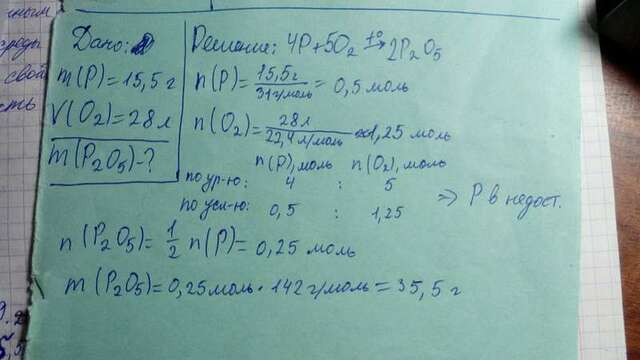 ным
роды
свой
сть
Дано:
m(P)=15,5 г
V(O₂)=28 л
m(P₂O₅)-?
Решение: 4P+5O₂ t°→ 2P₂O₅
n(P)= 15,5 г / 31 г/моль = 0,5 моль
n(O₂)= 28 л / 22,4 л/моль = 1,25 моль
n(P), моль n(O₂), моль
по ур-ю: 4 : 5
по усл-ю: 0,5 : 1,25 => P в недост.
n(P₂O₅)= 1/2 n(P)= 0,25 моль
m(P₂O₅)=0,25 моль · 142 г/моль = 35,5 г